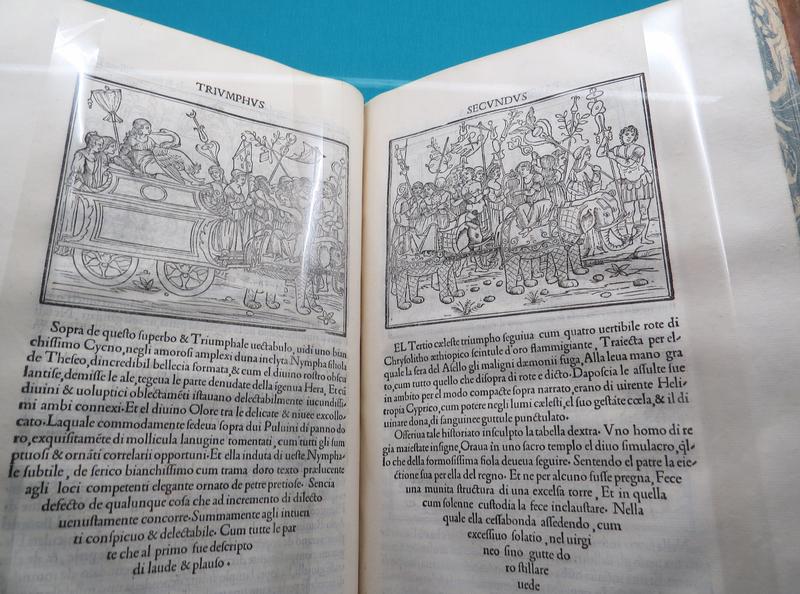 TRIVMPHVS
Sopra de questo superbo & Triumphale uectabulo, uidi uno bian
chissimo Cycno, negli amorosi amplexi duna inclyta Nympha filiola
de Theseo, dincredibil bellecia formata, & cum el diuino rostro obscu
lantise, demisse le ale, tegeua le parte denudate della igenua Hera, Et cũ
diuini & uoluptici oblectamẽti istauano delectabilmente iucundissi-
mi ambi connexi, Et el diuino Olore tra le delicate & niuee coxe collo-
cato. Laquale commodamente sedeua sopra dui Puluini di panno do
ro, exquisitamẽte di mollicula lanugine tomentati, cum tutti gli sum
ptuosi & ornãti correlarii opportuni. Et ella induta di ueste Nympha-
le subtile, de serico bianchissimo cum trama doro texto prælucente
agli loci competenti elegante ornato de petre pretiose. Sencia
defecto de qualunque cosa che ad incremento di dilecto
uenustamente concorre. Summamente agli intuen
ti conspicuo & delectabile. Cum tutte le par
te che al primo fue descripto
di laude & plauso.
SECVNDVS
EL Tertio cæleste triumpho seguiua cum quatro uertibile rote di
Chrysolitho æthiopico scintule doro flammigiante, Traiecta per el-
quale la seta del Asello gli maligni dæmonii fuga, Alla leua mano gra
to, cum tutto quello che di sopra di rote e dicto. Daposcia le assule sue
in ambito per el modo compacte sopra narrato, erano di uirente Heli-
tropia Cyprico, cum potere negli lumi cælesti, el suo gestãte cœla, & il di
uinare dona, di sanguinee guttule punctulato.
Offeriua tale historiato insculpto la tabella dextra. Vno homo di re
gia maiestate insigne, Oraua in uno sacro templo el diuo simulacro, q̃l-
lo che della formosissima fiola deueua seguire. Sentendo el patre la eie-
ctione sua per ella del regno. Et ne per alcuno fusse pregna, Fece
una munita structura di una excelsa torre, Et in quella
cum solenne custodia la fece inclaustrare. Nella
quale ella cessabonda assedendo, cum
excessiuo solatio, nel uirgi
neo sino gutte do
ro stillare
uede